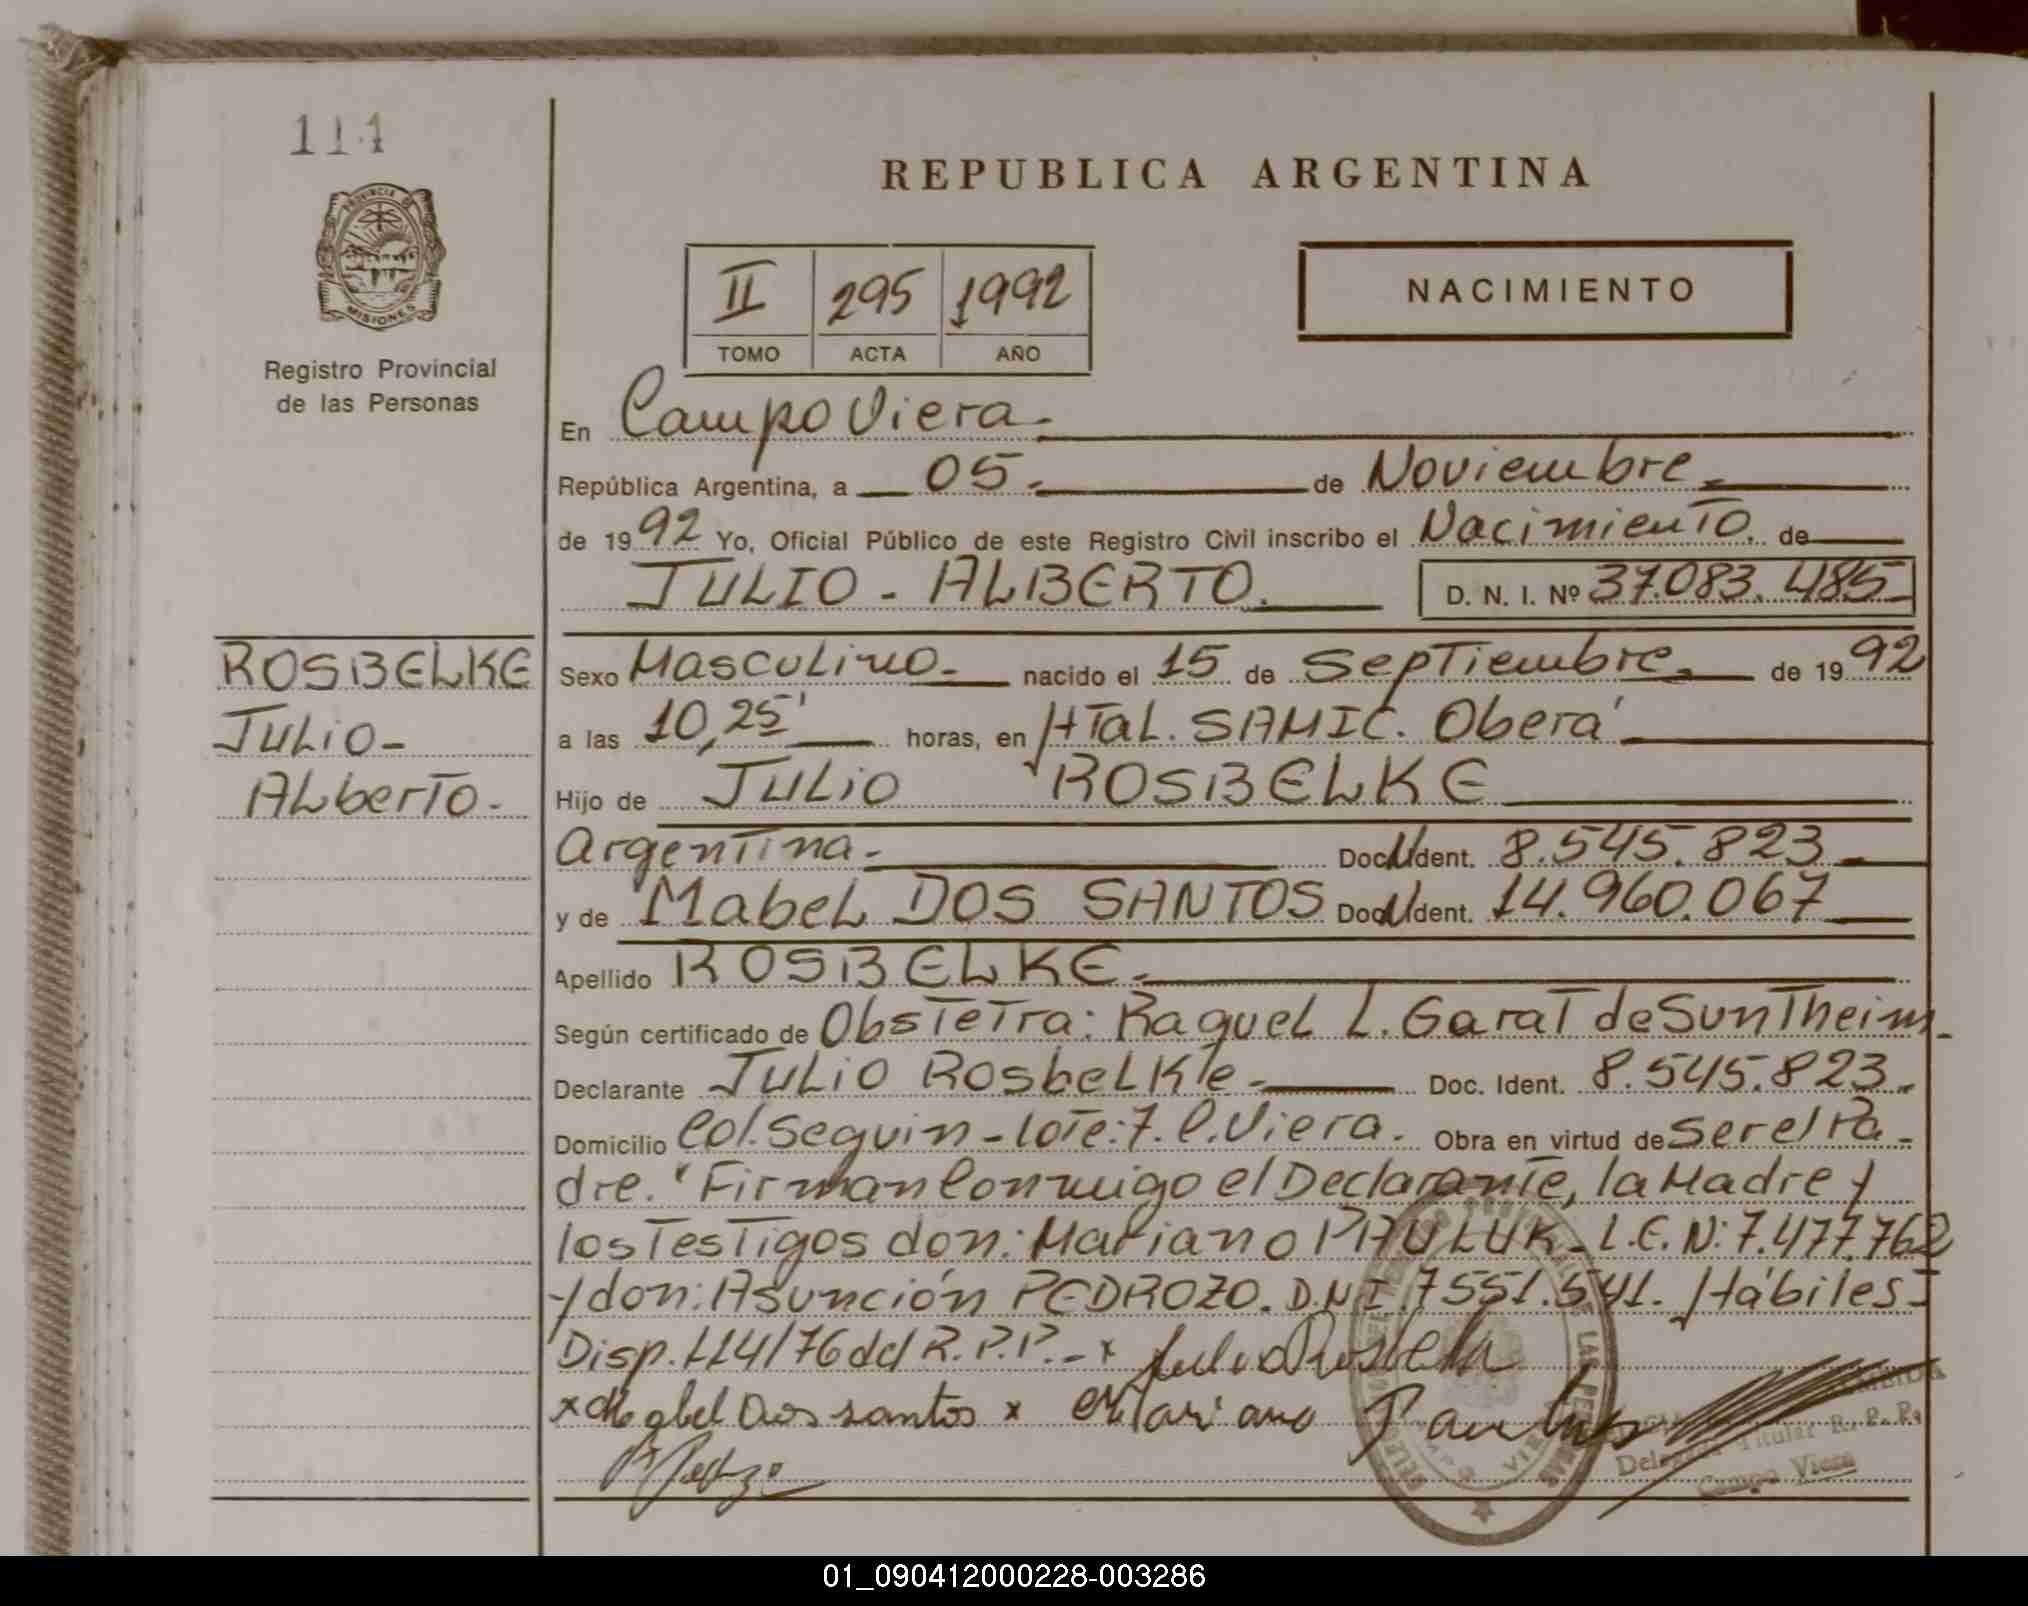 114
PROVINCIA DE
MISIONES
Registro Provincial
de las Personas
ROSBELKE
Julio-
Alberto-
REPUBLICA ARGENTINA
II 295 1992
TOMO ACTA AÑO
NACIMIENTO
En Campo Viera-
República Argentina, a 05- de Noviembre-
de 1992 Yo, Oficial Público de este Registro Civil inscribo el Nacimiento. de
JULIO - ALBERTO. D. N. I. Nº 37.083.485
Sexo Masculino- nacido el 15 de Septiembre- de 1992
a las 10,25' horas, en Htal. SAMIC. Oberá
Hijo de Julio ROSBELKE
Argentina- Doc. Ident. 8.545.823
y de Mabel DOS SANTOS Doc. Ident. 14.960.067
Apellido ROSBELKE-
Según certificado de Obstetra: Raquel L. Garat de Suntheim-
Declarante Julio Rosbelke- Doc. Ident. 8.545.823-
Domicilio Col. Seguin - lote: 7. C. Viera. Obra en virtud de ser el Pa-
dre. "Firman Conmigo el Declarante, la Madre y
los Testigos don: Mariano PAULUK- L.E.N: 7.477.762
y don: Asunción PEDROZO. D.N.I. 7551.541. Hábiles-
Disp. 114/76 del R.P.P.- x Julio Rosbelk
x Mabel Dos santos x Mariano Pauluk
Titular R. P. P.
Campo Viera
01_090412000228-003286